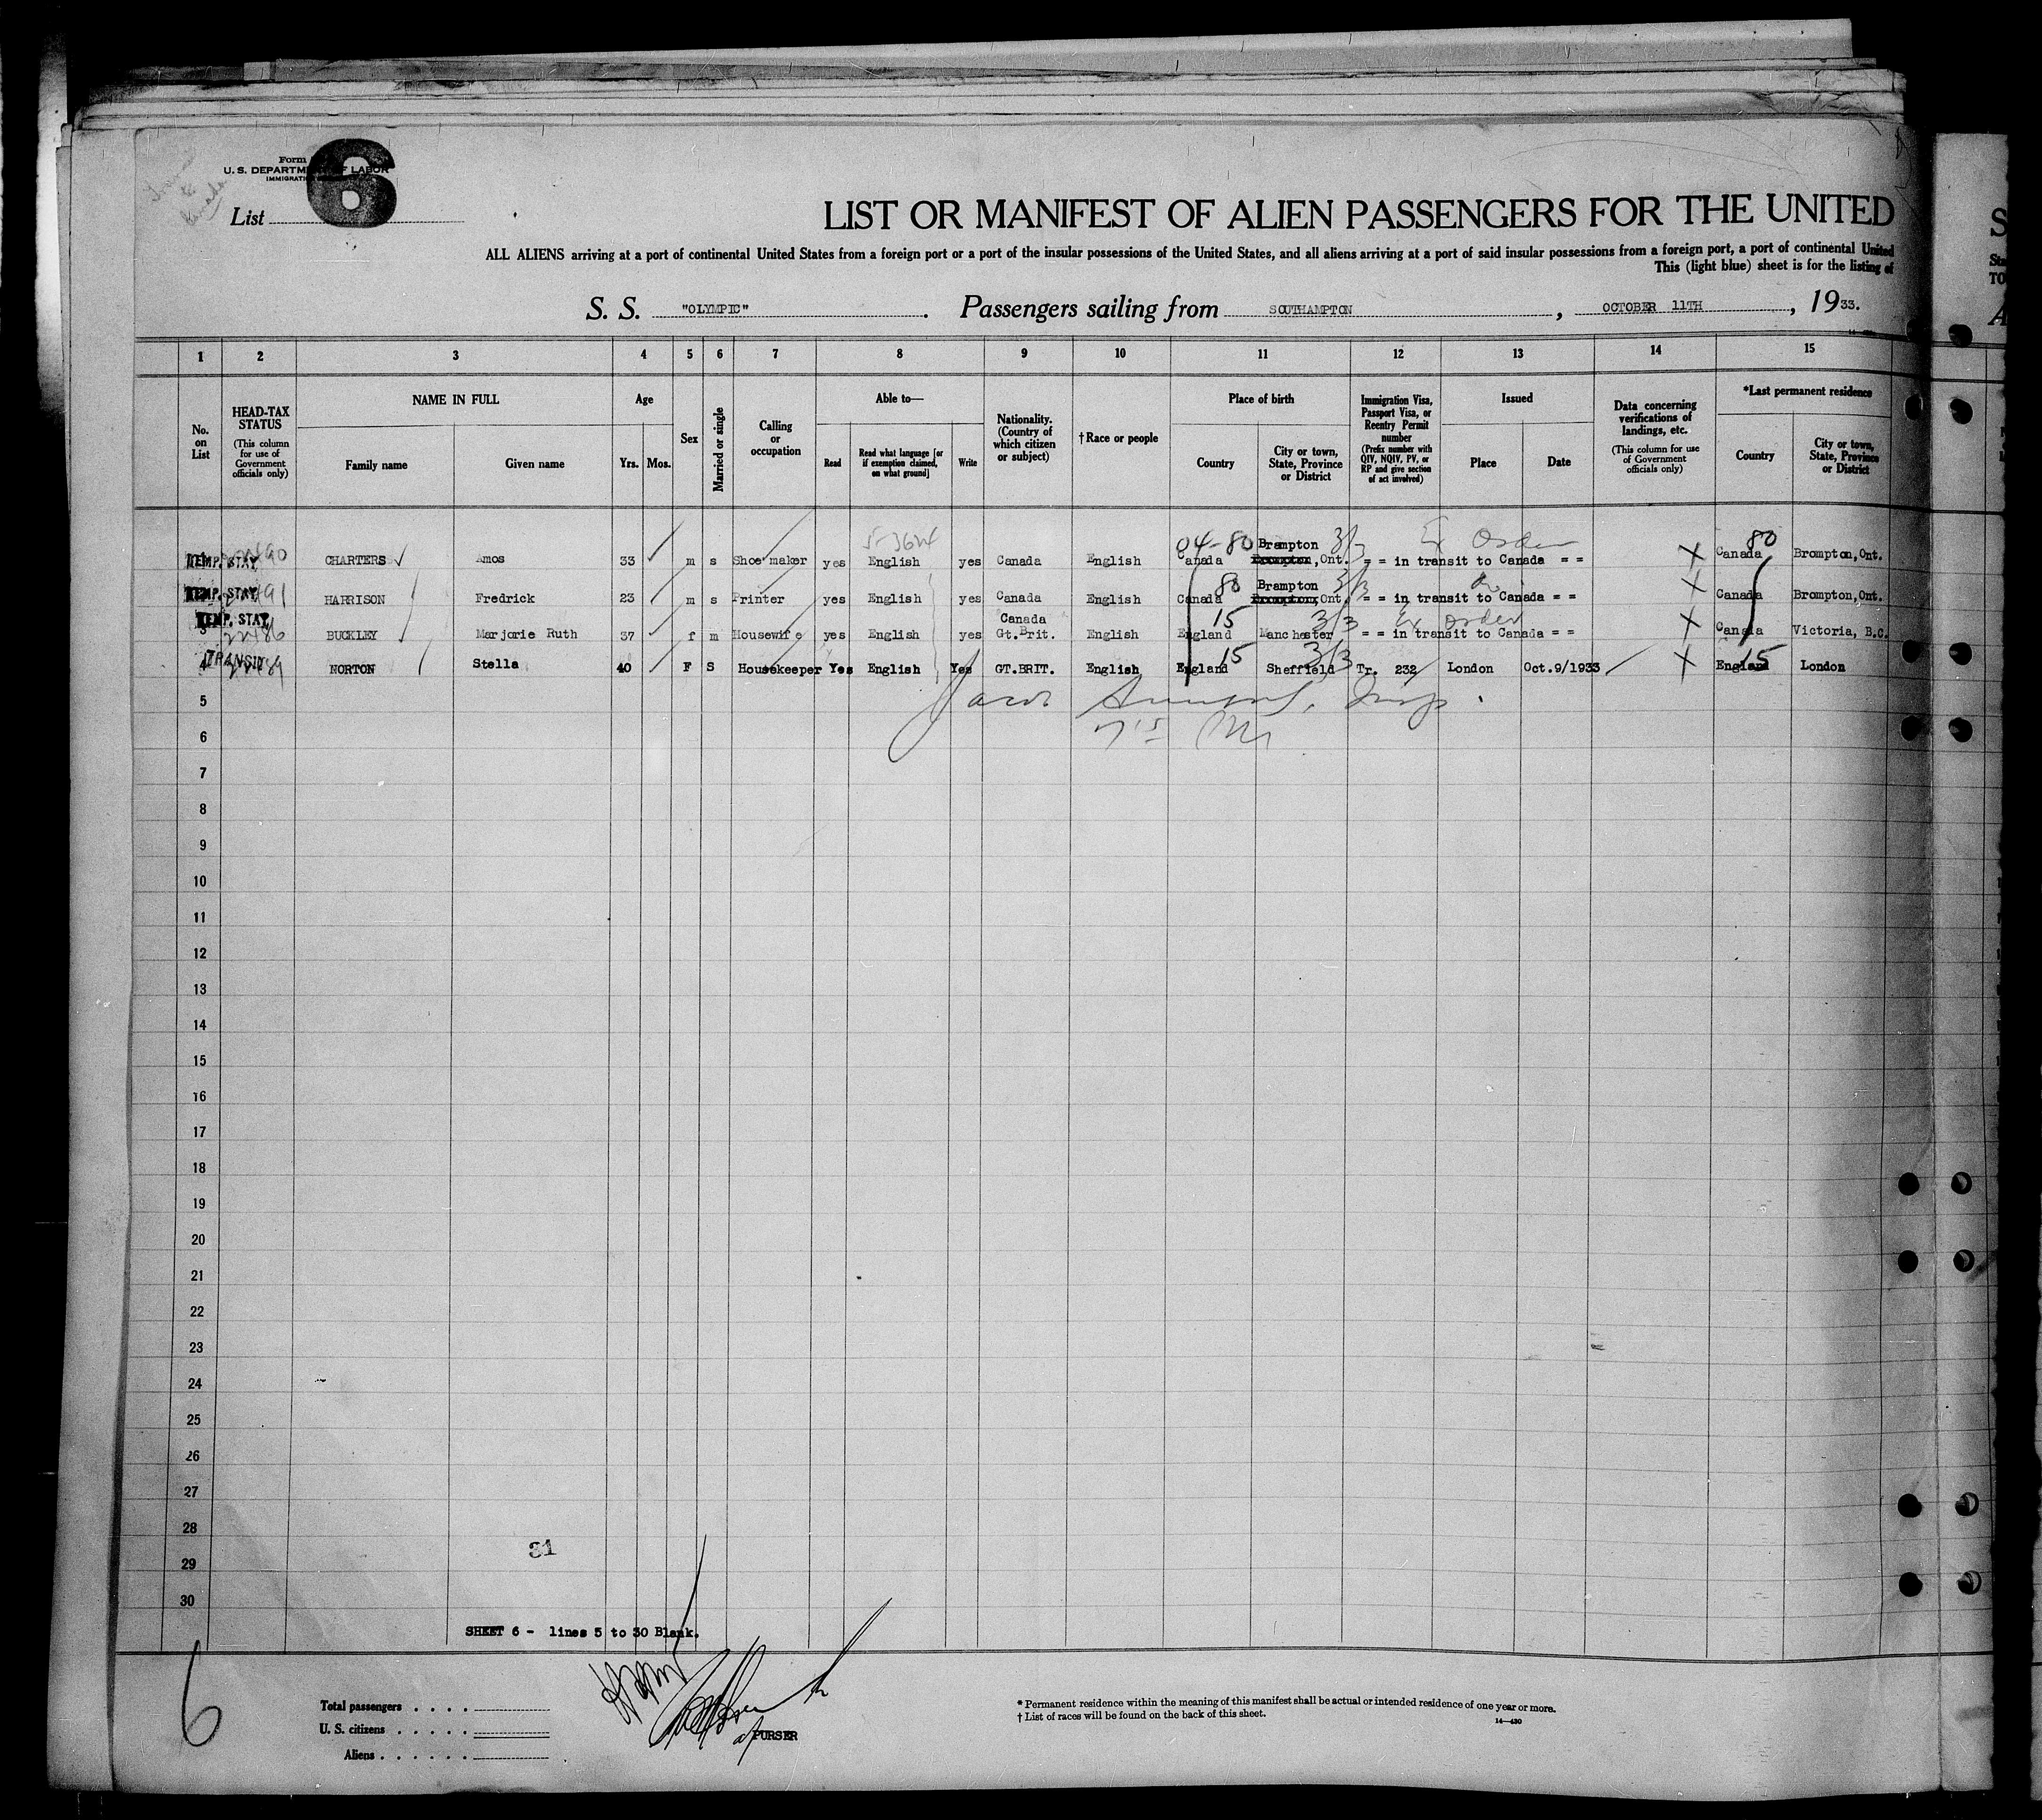 Form
U. S. DEPARTMENT OF LABOR
IMMIGRATION
List
6
LIST OR MANIFEST OF ALIEN PASSENGERS FOR THE UNITED
ALL ALIENS arriving at a port of continental United States from a foreign port or a port of the insular possessions of the United States, and all aliens arriving at a port of said insular possessions from a foreign port, a port of continental United
This (light blue) sheet is for the listing of
S. S. "OLYMPIC". Passengers sailing from SOUTHAMPTON, OCTOBER 11TH, 1933.
1 2 3 4 5 6 7 8 9 10 11 12 13 14 15
No. on List
HEAD-TAX STATUS (This column for use of Government officials only)
NAME IN FULL
Family name
Given name
Age
Yrs. Mos.
Sex
Married or single
Calling or occupation
Able to—
Read
Read what language [or if exemption claimed, on what ground]
Write
Nationality. (Country of which citizen or subject)
†Race or people
Place of birth
Country
City or town, State, Province or District
Immigration Visa, Passport Visa, or Reentry Permit number (Prefix number with QIV, NQIV, PV, or RP and give section of act involved)
Issued
Place
Date
Data concerning verifications of landings, etc. (This column for use of Government officials only)
*Last permanent residence
Country
City or town, State, Province or District
04-80 Brampton 3/3 Ex Order 80
TEMP. STAY CHARTERS Amos 33 m s Shoe maker yes English yes Canada English Canada , Ont. = = in transit to Canada = = X Canada Brompton, Ont.
80 Brampton 3/3
TEMP. STAY HARRISON Fredrick 23 m s Printer yes English yes Canada English Canada , Ont. = = in transit to Canada = = X Canada Brompton, Ont.
TEMP. STAY Canada 15 3/3 Ex Order
3 22486 BUCKLEY Marjorie Ruth 37 f m Housewife yes English yes Gt. Brit. English England Manchester = = in transit to Canada = = X Canada Victoria, B.C.
15 3/3 15
4 TRANSIT NORTON Stella 40 F S Housekeeper Yes English Yes GT.BRIT. English England Sheffield Tr. 232 London Oct.9/1933 X England London
5
6
7
8
9
10
11
12
13
14
15
16
17
18
19
20
21
22
23
24
25
26
27
28
29
30
31
SHEET 6 - lines 5 to 30 Blank.
6
Total passengers . . . .
U. S. citizens . . . . .
Aliens . . . . . .
PURSER
* Permanent residence within the meaning of this manifest shall be actual or intended residence of one year or more.
† List of races will be found on the back of this sheet.
14—430